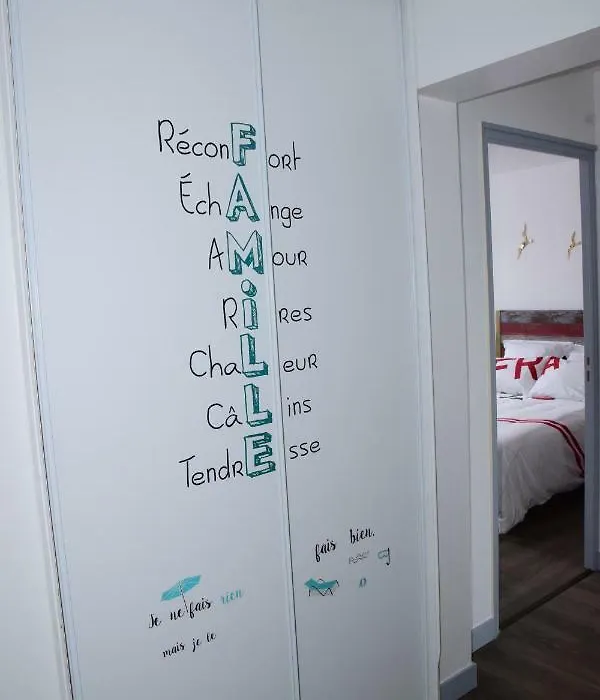 RéconFort
ÉchAnge
AMOUR
RiRes
ChaLeuR
CâLins
TendREsse
fais bien.
Je ne fais rien
mais je le
FRA